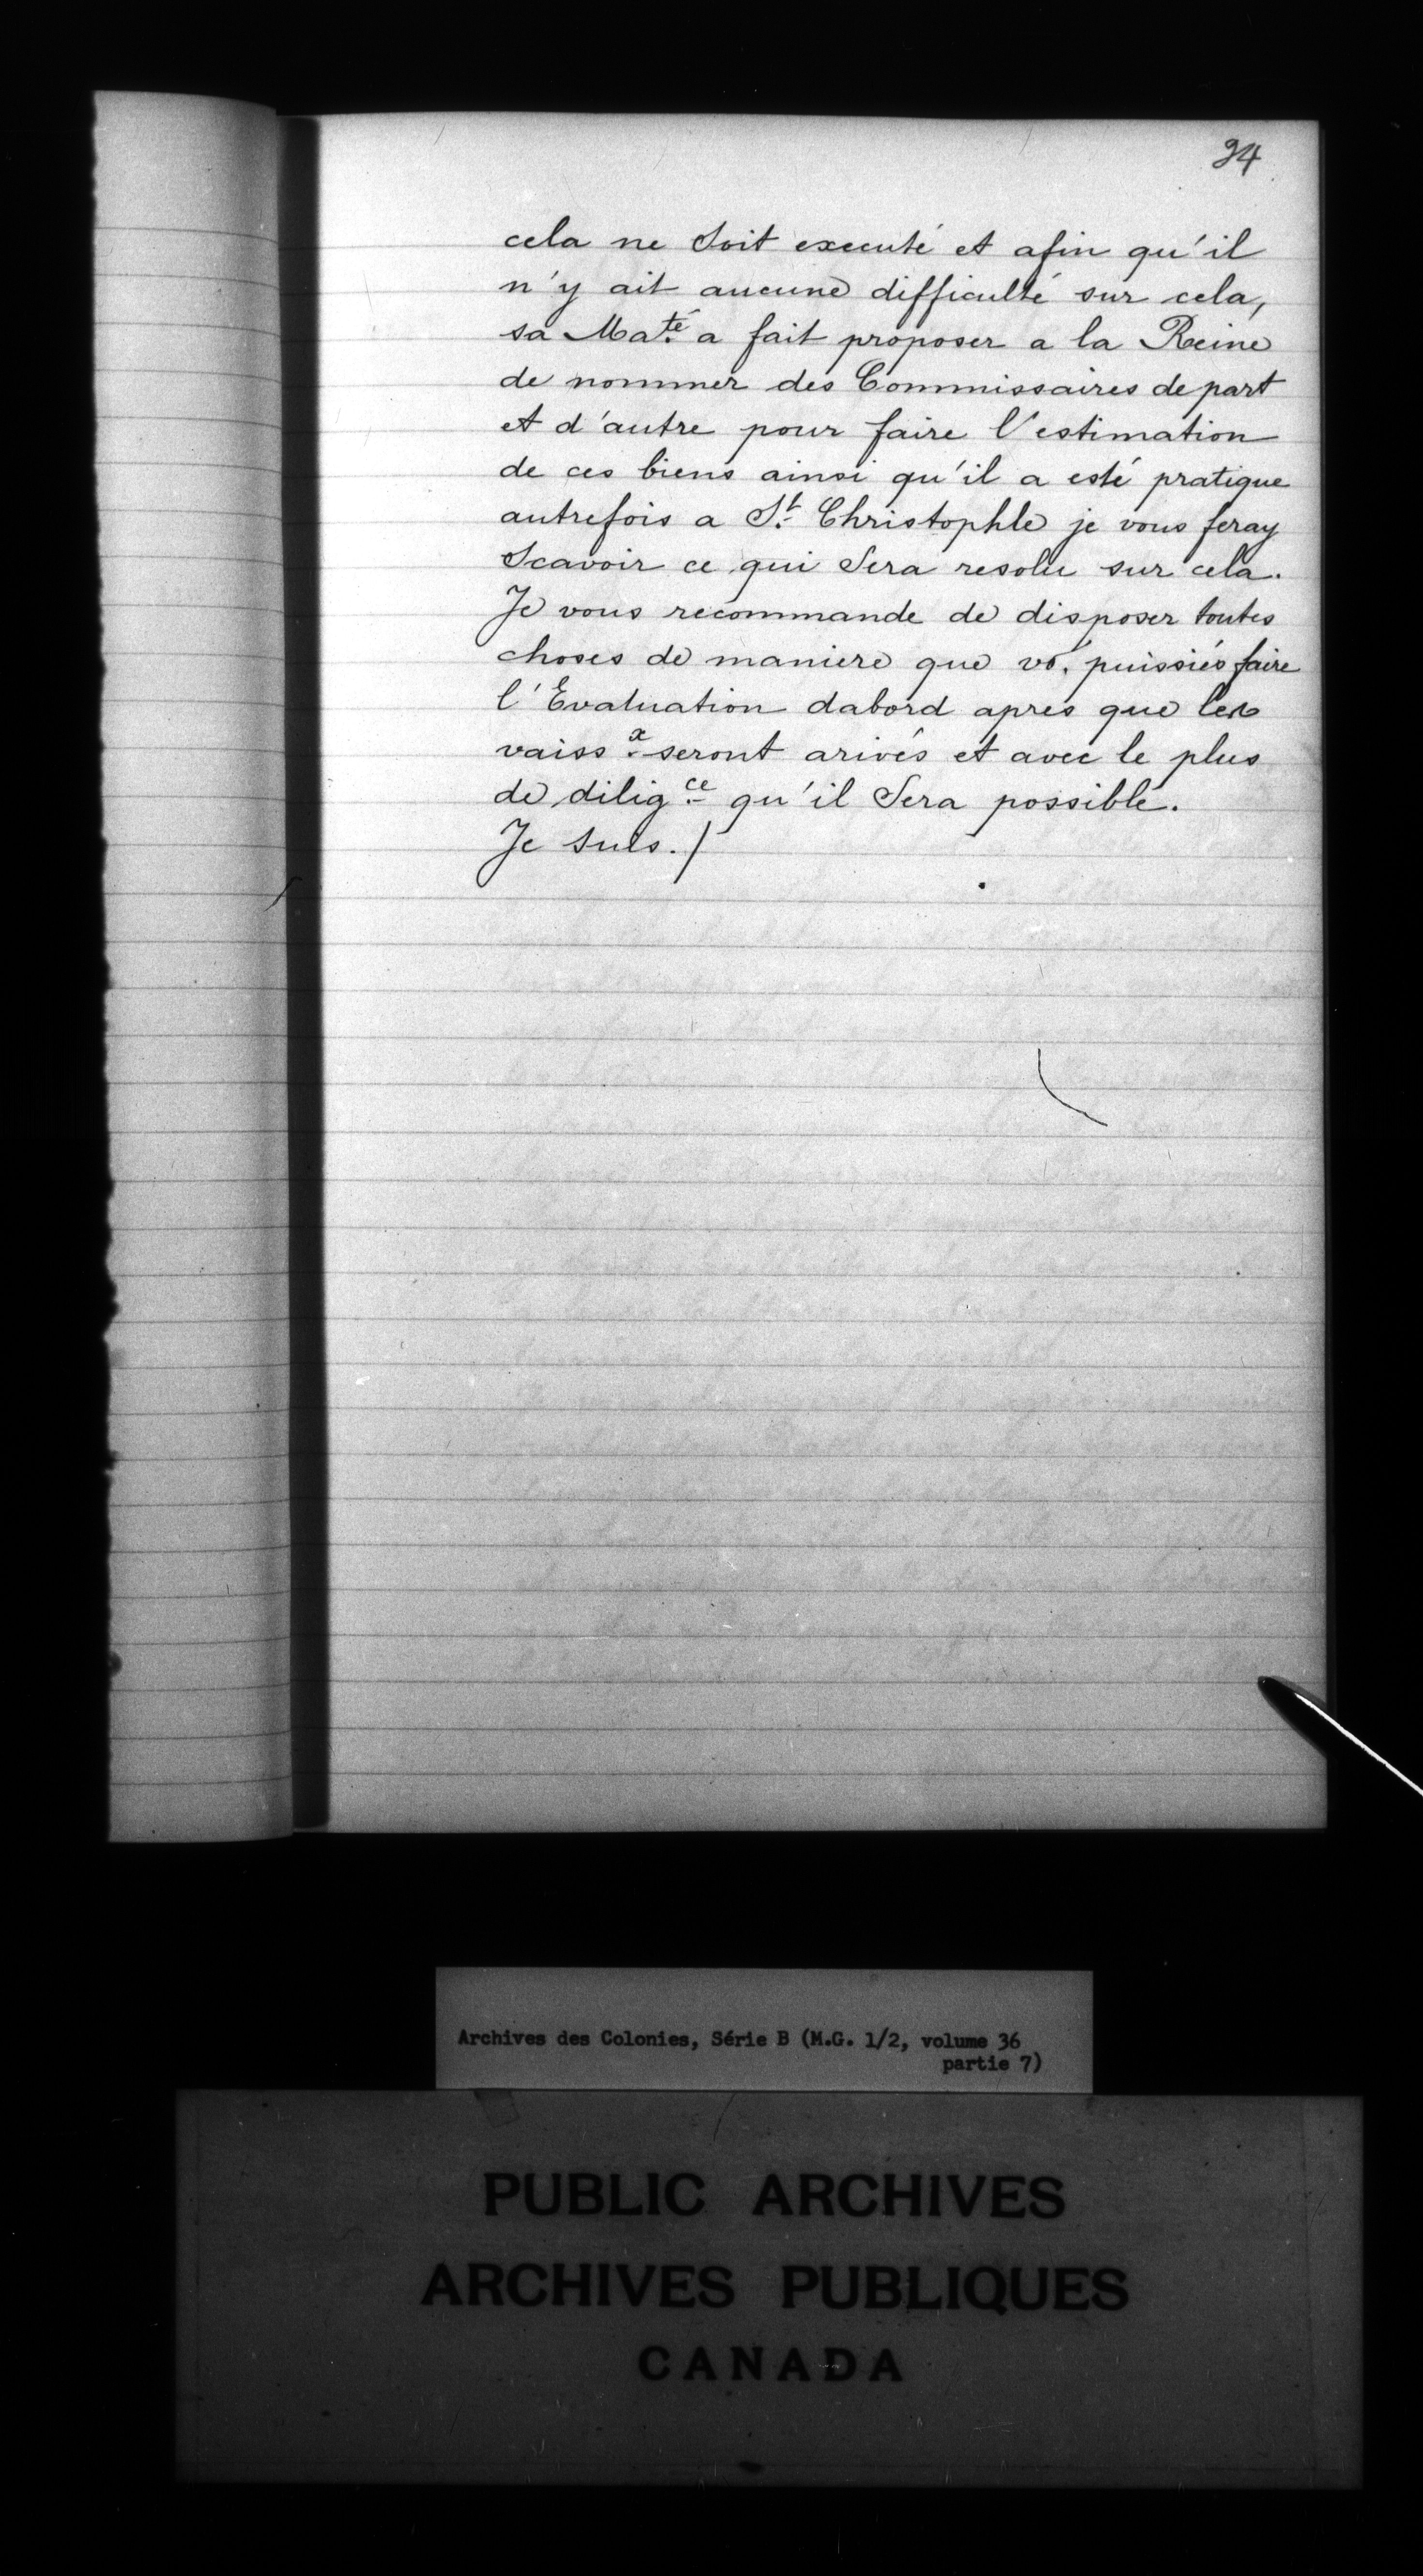 94
cela ne soit executé et afin qu'il
n'y ait aucune difficulté sur cela,
sa Ma.té a fait proposer a la Reine
de nommer des Commissaires de part
et d'autre pour faire l'estimation
de ces biens ainsi qu'il a esté pratique
autrefois a St. Christophle je vous feray
scavoir ce qui sera resolu sur cela.
Je vous recommande de disposer toutes
choses de maniere que vo. puissiés faire
l'Evaluation dabord apres que les
vaiss.x seront arivés et avec le plus
de dilig.ce qu'il sera possible.
Je suis./
Archives des Colonies, Série B (M.G. 1/2, volume 36
partie 7)
PUBLIC ARCHIVES
ARCHIVES PUBLIQUES
CANADA